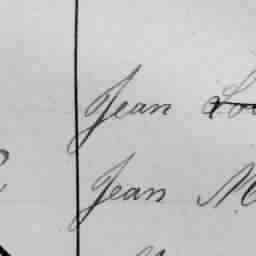 Jean
Jean M